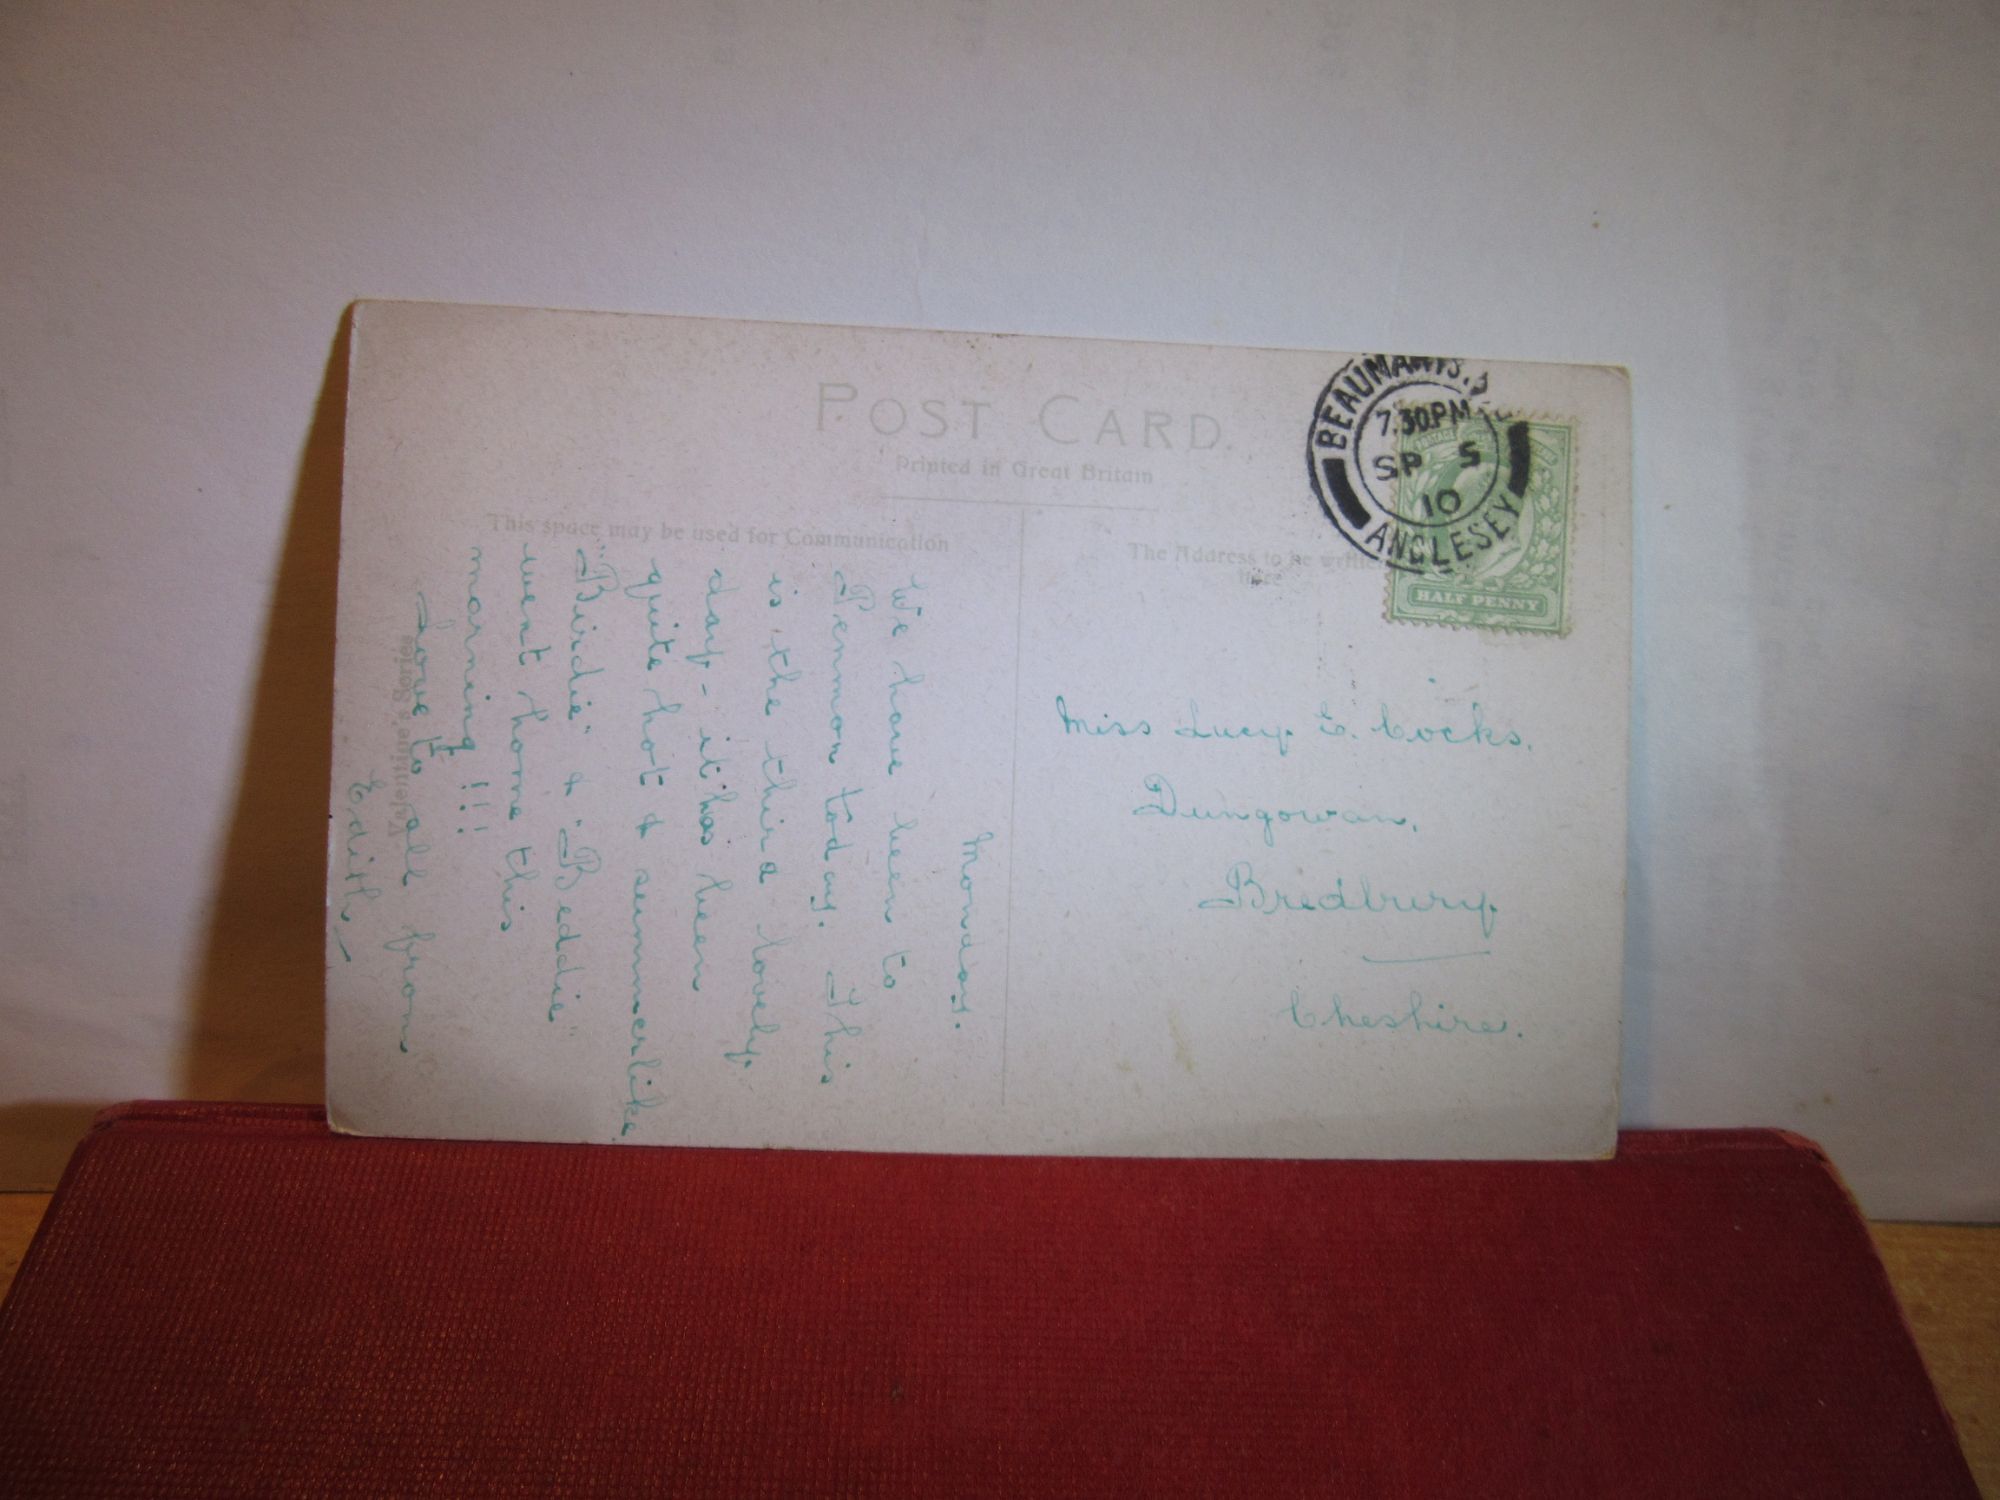 POST CARD.
Printed in Great Britain
This space may be used for Communication
The Address to be written
here
Valentine's Series
BEAUMARIS.
7.30PM
SP 5
10
ANGLESEY
HALF PENNY
Monday.
We have been to
Penmon today. This
is the third lovely
day - it has been
quite hot & summerlike.
"Birdie" & "Beddie"
went home this
morning!!!
Love to all from
Edith
Miss Lucy E. Cocks.
Dungowan,
Bredbury
Cheshire.